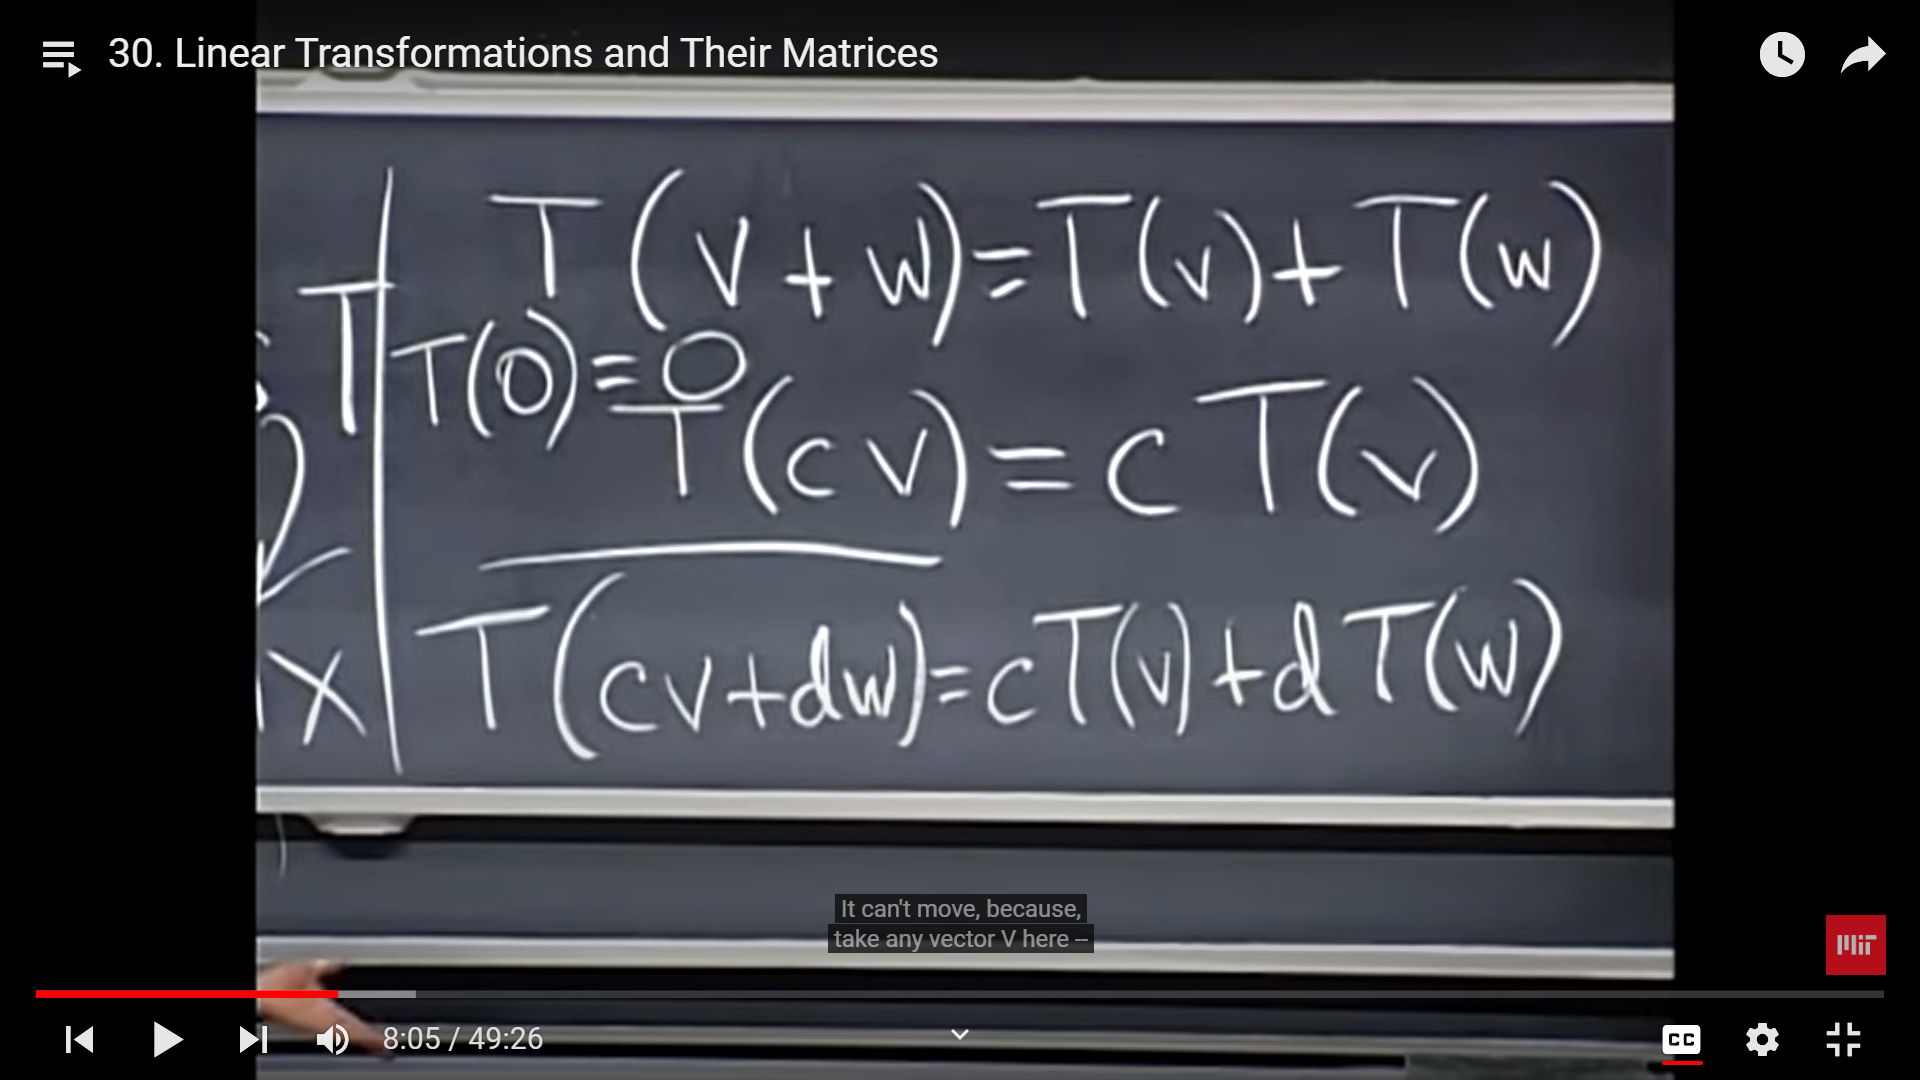 30. Linear Transformations and Their Matrices
T(v+w)=T(v)+T(w)
T
T(0)=0
T(cv)=cT(v)
x
T(cv+dw)=cT(v)+dT(w)
It can't move, because,
take any vector V here --
MIT
8:05 / 49:26
CC